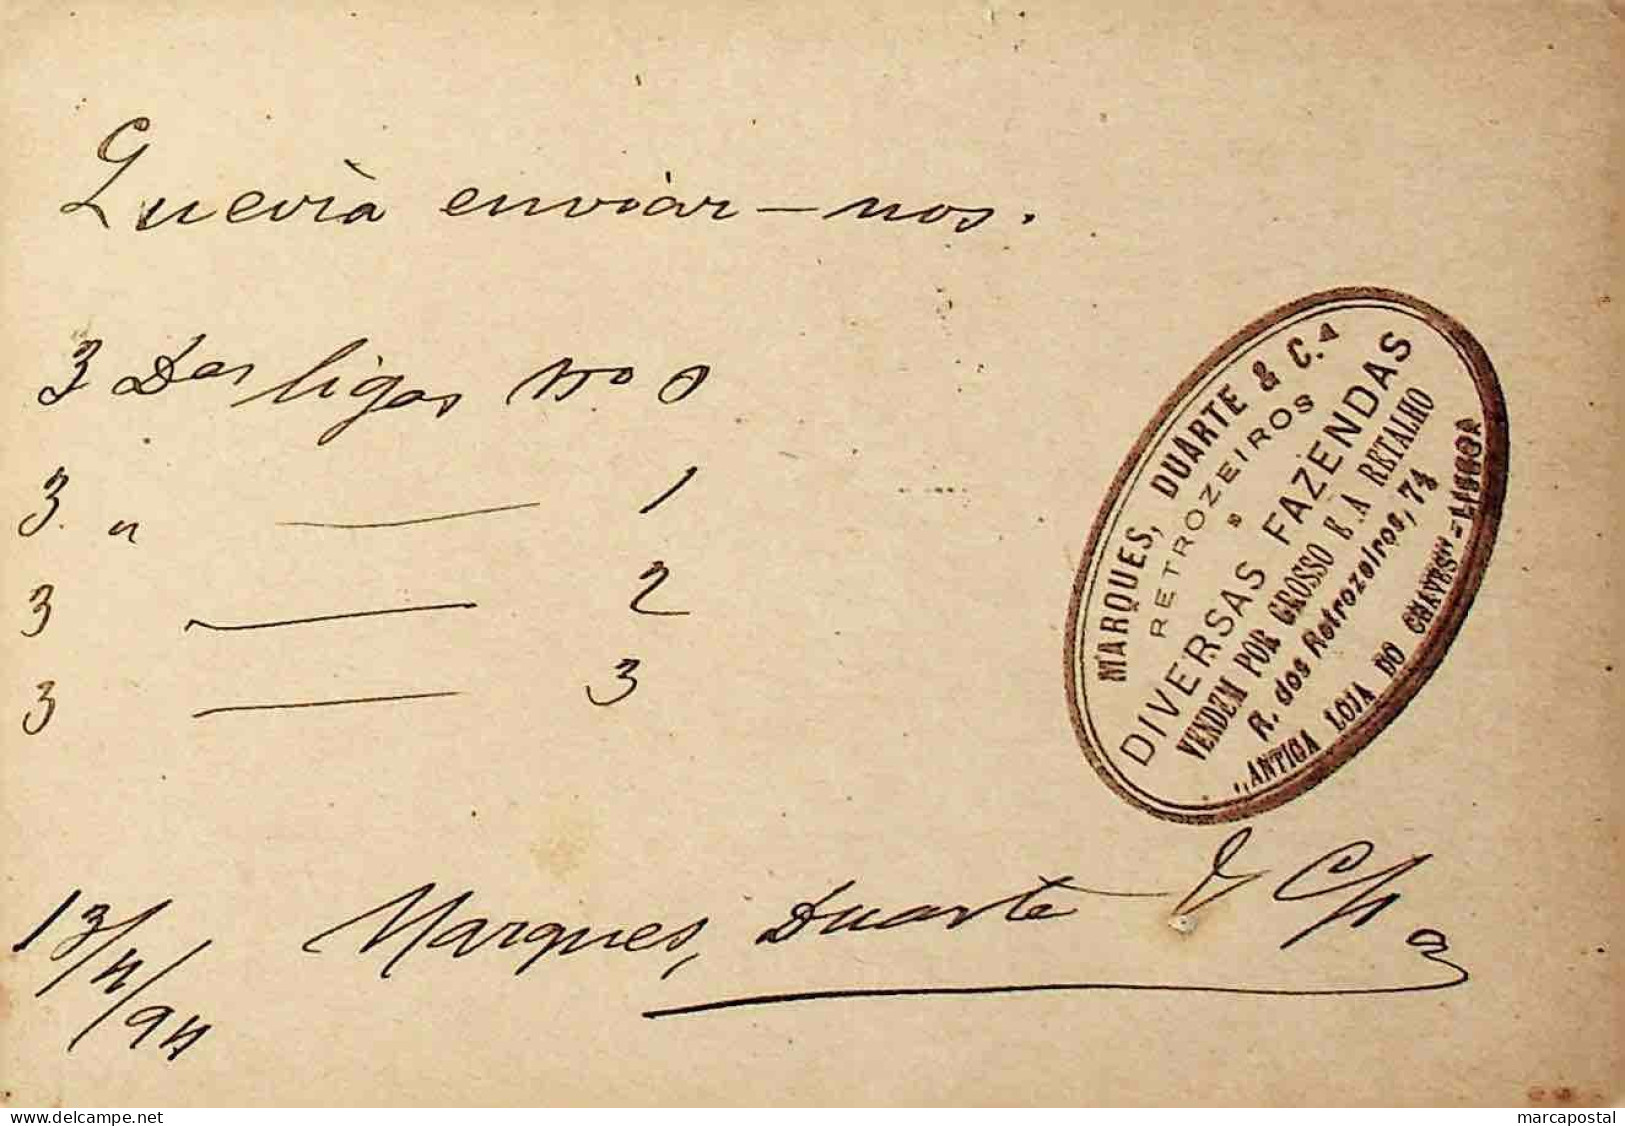 Queria enviar-nos.
3 Das ligas no 0
3 " — 1
3 — 2
3 — 3
MARQUES, DUARTE & C.ª
RETROZEIROS
DIVERSAS FAZENDAS
VENDEM POR GROSSO E A RETALHO
R. dos Retrozeiros,
"ANTIGA LOJA DO CHAVES" = LISBOA
13/4/94
Marques, Duarte & Cª
delcampe.net
marcapostal